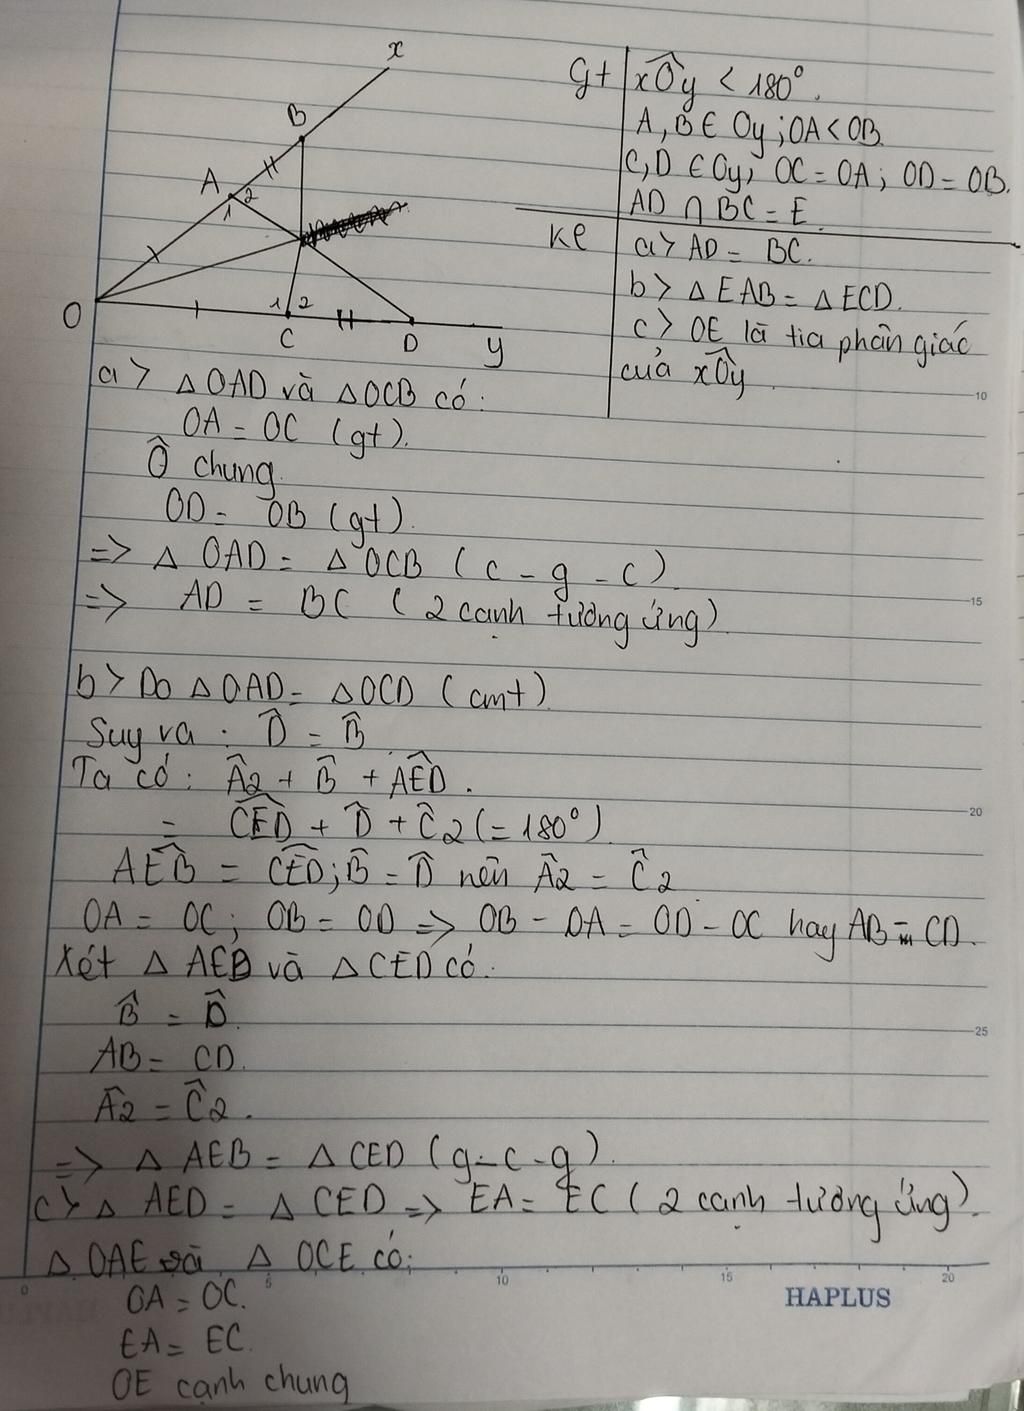 x
B
A
2
1
O
1 2
C
D
y
gt xÔy < 180°.
A, B ∈ Oy; OA < OB.
C, D ∈ Oy; OC = OA; OD = OB.
AD ∩ BC = E.
Kl a> AD = BC.
b> △ EAB = △ ECD.
c> OE là tia phân giác
của xÔy
a> △ OAD và △ OCB có:
OA = OC (gt).
Ô chung.
OD = OB (gt).
=> △ OAD = △ OCB (c - g - c)
=> AD = BC (2 cạnh tương ứng).
b> Do △ OAD = △ OCD (cmt).
Suy va : D̂ = B̂
Ta có: Â2 + B̂ + AÊD.
= CÊD + D̂ + Ĉ2 (= 180°)
AÊB = CÊD; B̂ = D̂ nên Â2 = Ĉ2
OA = OC; OB = OD => OB - OA = OD - OC hay AB = CD.
Xét △ AEB và △ CED có:
B̂ = D̂.
AB = CD.
Â2 = Ĉ2.
=> △ AEB = △ CED (g - c - g).
c> △ AED = △ CED => EA = EC (2 cạnh tương ứng).
△ OAE và △ OCE có:
OA = OC.
EA = EC.
OE cạnh chung
10
15
20
25
0 5 10 15 20
HAPLUS